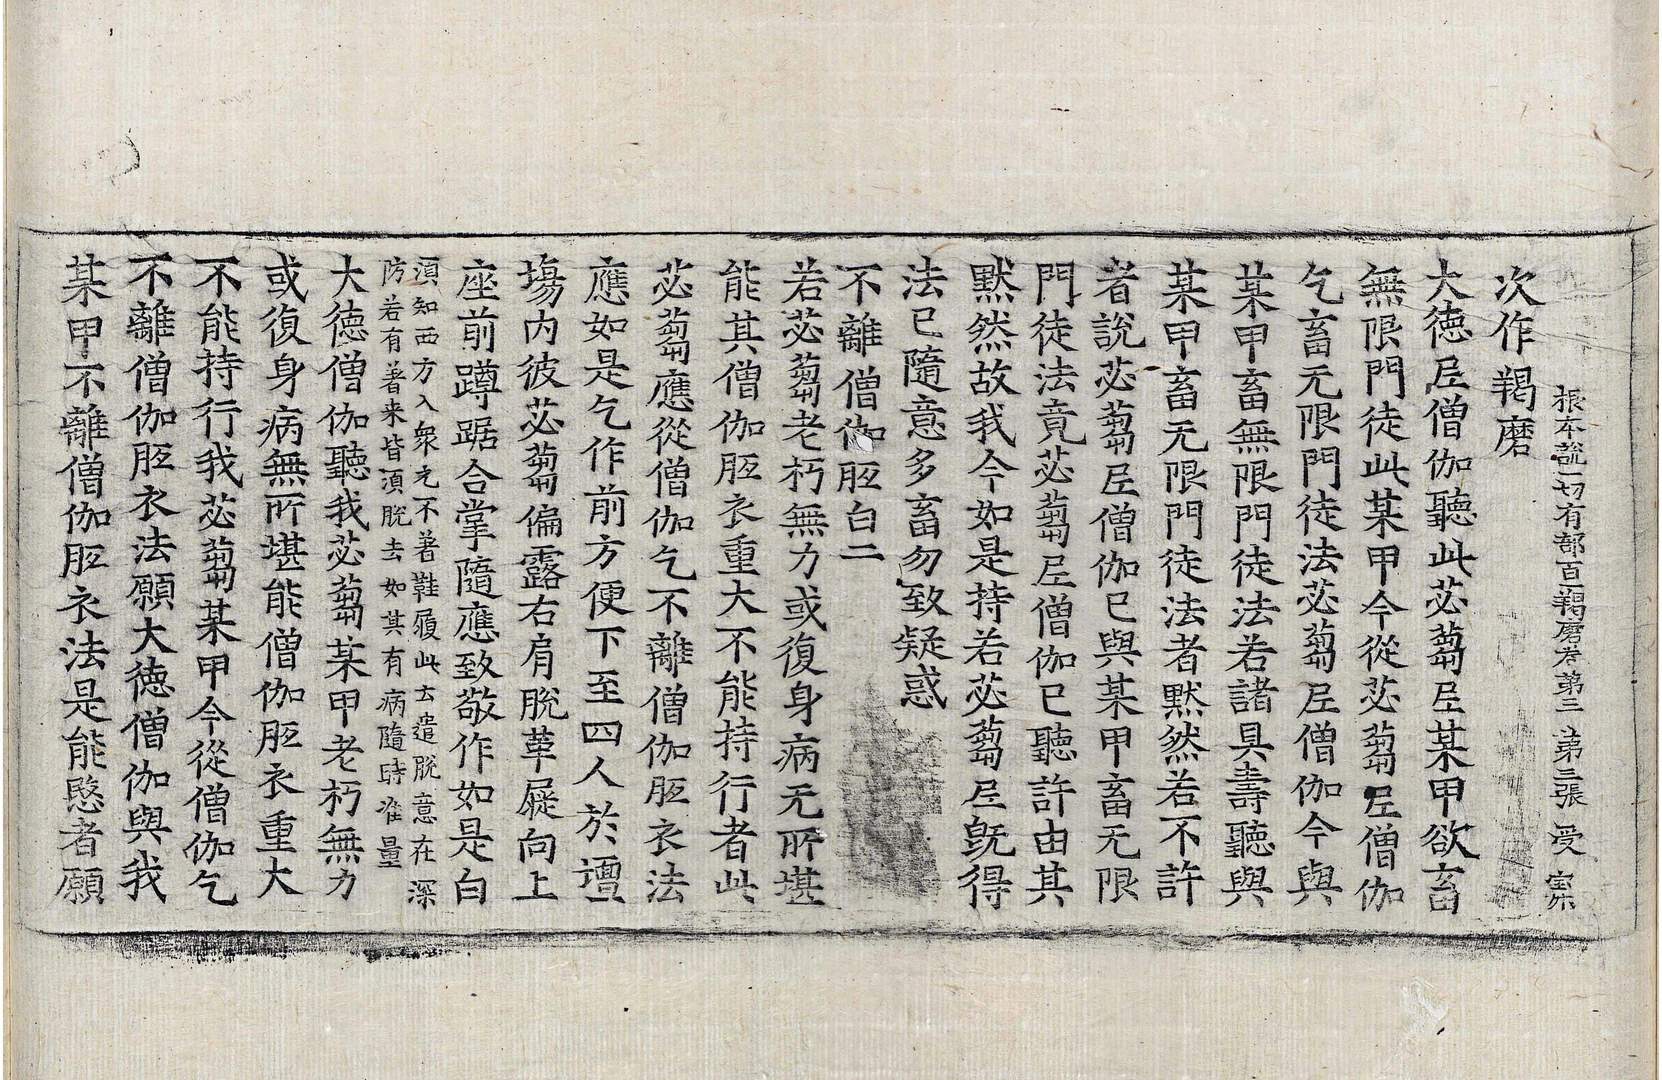 根本說一切有部百一羯磨卷第三 第三張 受 宲
次作羯磨
大德尼僧伽聽此苾蒭尼某甲欲畜
無限門徒此某甲今從苾蒭尼僧伽
乞畜无限門徒法苾蒭尼僧伽今與
某甲畜無限門徒法若諸具壽聽與
某甲畜无限門徒法者黙然若不許
者說苾蒭尼僧伽已與某甲畜无限
門徒法竟苾蒭尼僧伽已聽許由其
黙然故我今如是持若苾蒭尼旣得
法已隨意多畜勿致疑惑
不離僧伽胝白二
若苾蒭老朽無力或復身病无所堪
能其僧伽胝衣重大不能持行者此
苾蒭應從僧伽乞不離僧伽胝衣法
應如是乞作前方便下至四人於壇
場內彼苾蒭偏露右肩脫草屣向上
座前蹲踞合掌隨應致敬作如是白
湏知西方入衆元不著鞋履此言遣脫意在深
防若有著来皆湏脫去如其有病隨時准量
大德僧伽聽我苾蒭某甲老朽無力
或復身病無所堪能僧伽胝衣重大
不能持行我苾蒭某甲今從僧伽乞
不離僧伽胝衣法願大德僧伽與我
某甲不離僧伽胝衣法是能愍者願